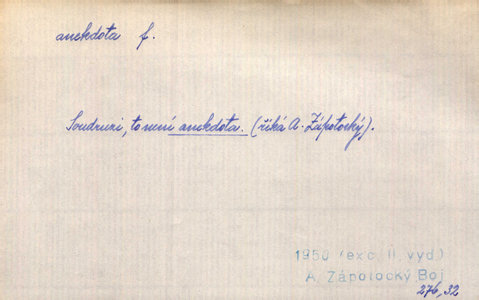 anekdota f.
Soudruzi, to není anekdota. (říká A. Zápotocký).
1950 (exc. II. vyd.)
A. Zápotocký Boj
276,32